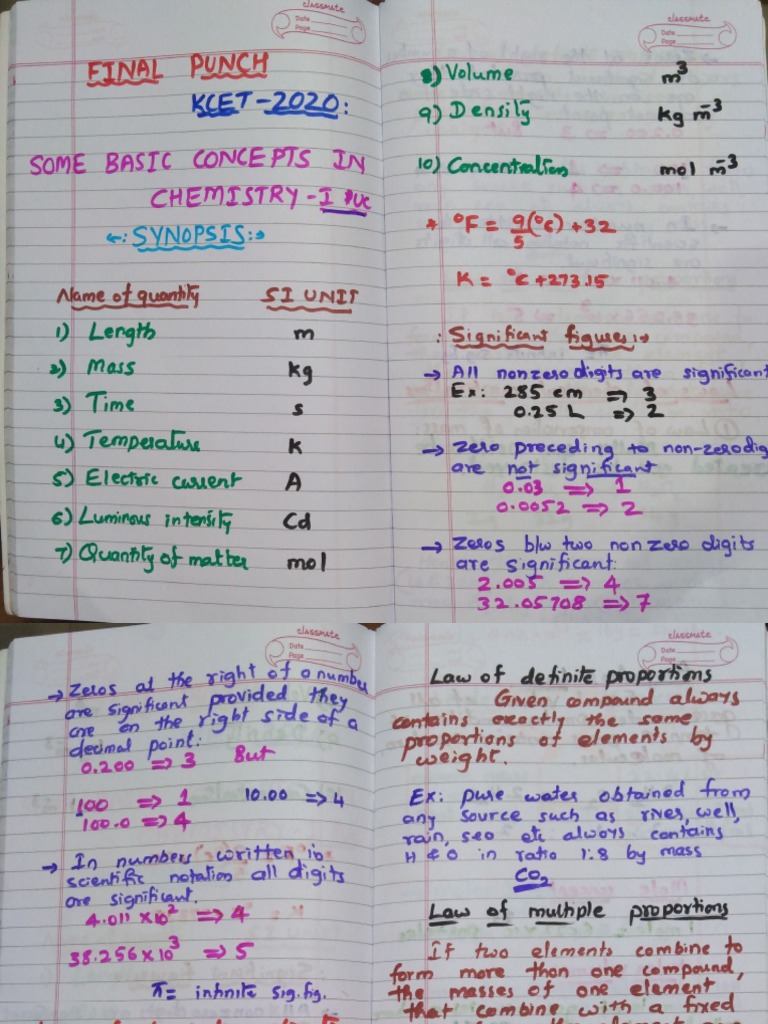 classmate
Date
Page
FINAL PUNCH
KCET-2020:
SOME BASIC CONCEPTS IN
CHEMISTRY-I PUC
SYNOPSIS:
Name of quantity SI UNIT
1) Length m
2) Mass kg
3) Time s
4) Temperature K
5) Electric current A
6) Luminous intensity Cd
7) Quantity of matter mol
classmate
Date
Page
8) Volume m³
9) Density kg m⁻³
10) Concentration mol m⁻³
* °F = 9/5 (°c) + 32
K = °c + 273.15
: Significant figures :→
→ All nonzero digits are significant
Ex: 285 cm => 3
0.25 L => 2
→ Zero preceding to non-zero dig
are not significant
0.03 => 1
0.0052 => 2
→ Zeros b/w two non zero digits
are significant:
2.005 => 4
32.05708 => 7
classmate
Date
Page
→ Zeros at the right of a number
are significant provided they
are on the right side of a
decimal point:
0.200 => 3 But
100 => 1 10.00 => 4
100.0 => 4
→ In numbers written in
scientific notation all digits
are significant.
4.011 × 10² => 4
38.256 × 10³ => 5
π = infinite sig. fig.
classmate
Date
Page
Law of definite proportions
Given compound always
contains exactly the same
proportions of elements by
weight.
Ex: pure water obtained from
any source such as river, well,
rain, sea etc always contains
H & O in ratio 1:8 by mass
CO₂
Law of multiple proportions
If two elements combine to
form more than one compound,
the masses of one element
that combine with a fixed